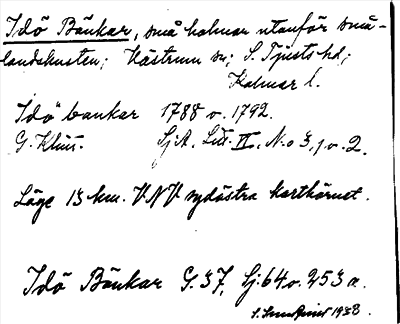 Idö Bänkar, små holmar utanför små-
landskusten; Hästrum sn; S. Tjusts hd;
Kalmar l.
Idö bankar 1788 o. 1792.
G. Klint. Sj A. Litt. II, N.o 3, 1 o. 2.
Läge 13 km. VNV sydöstra karthörnet.
Idö Bänkar G. 37, Sj. 64 o. 253 a.
1938.